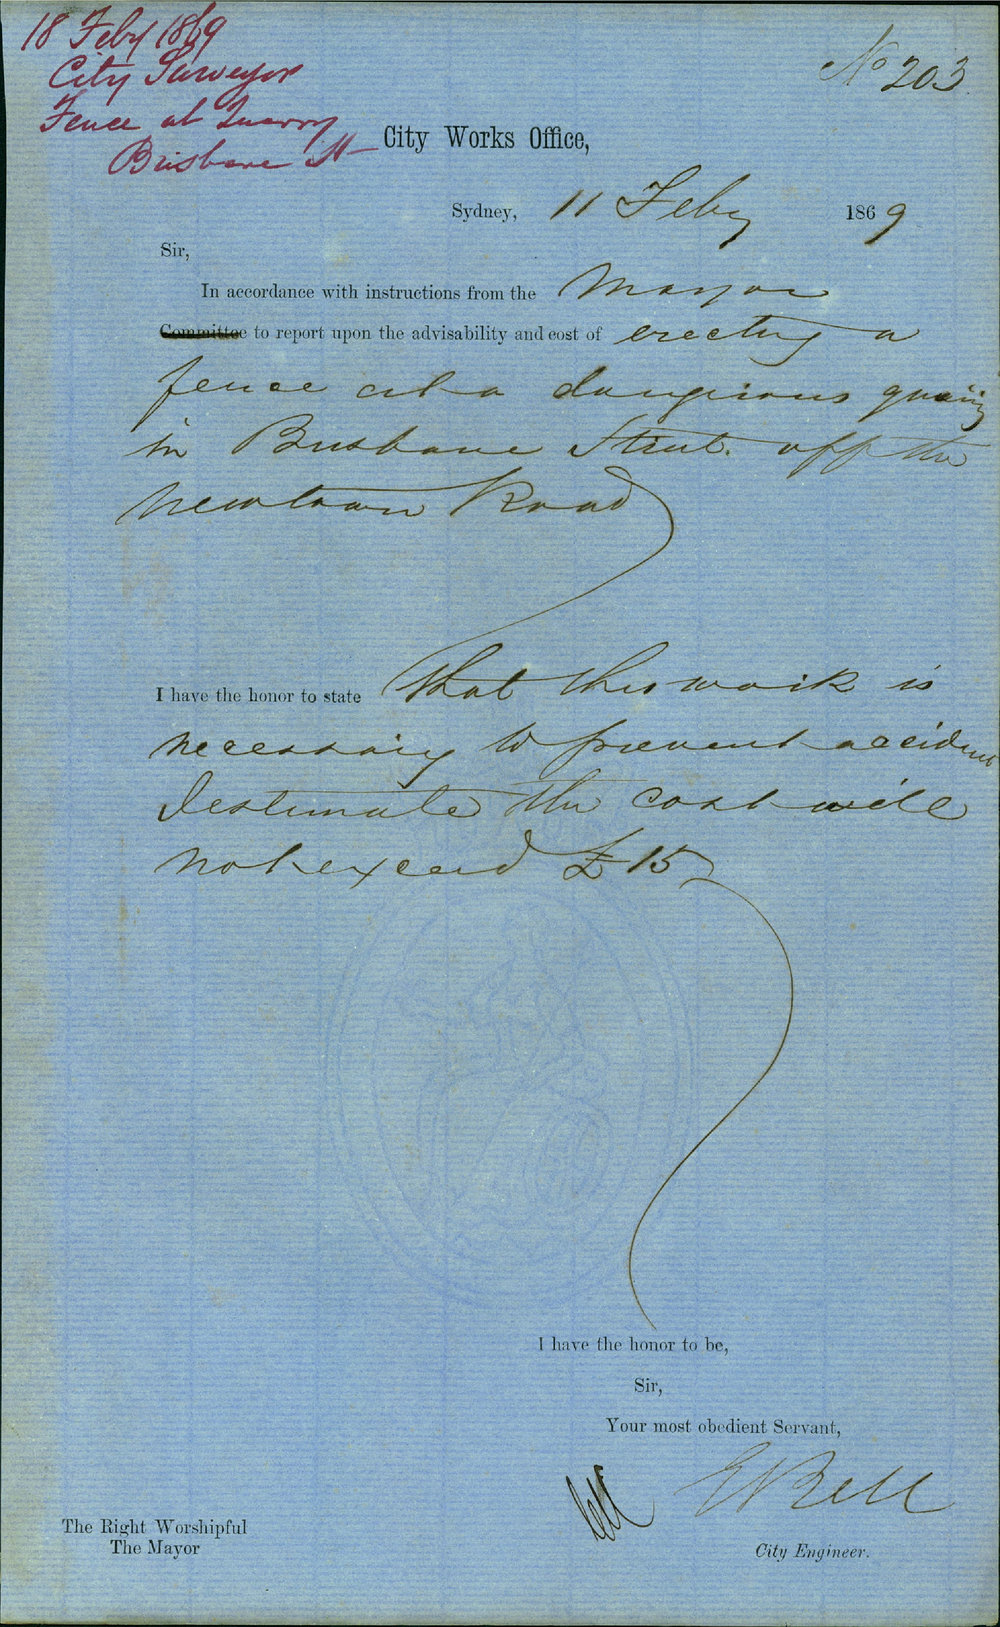 18 Feby 1869
No 203
City Surveyor
Fence at Quarry
Brisbane St
City Works Office,
Sydney, 11 Feby 1869
Sir,
In accordance with instructions from the Mayor
Committee to report upon the advisability and cost of erecting a
fence at a dangerous quarry
in Brisbane Street off the
Newtown Road
I have the honor to state that this work is
necessary to prevent accident
I estimate the cost will
not exceed £15
I have the honor to be,
Sir,
Your most obedient Servant,
E Bell
The Right Worshipful
The Mayor
City Engineer.